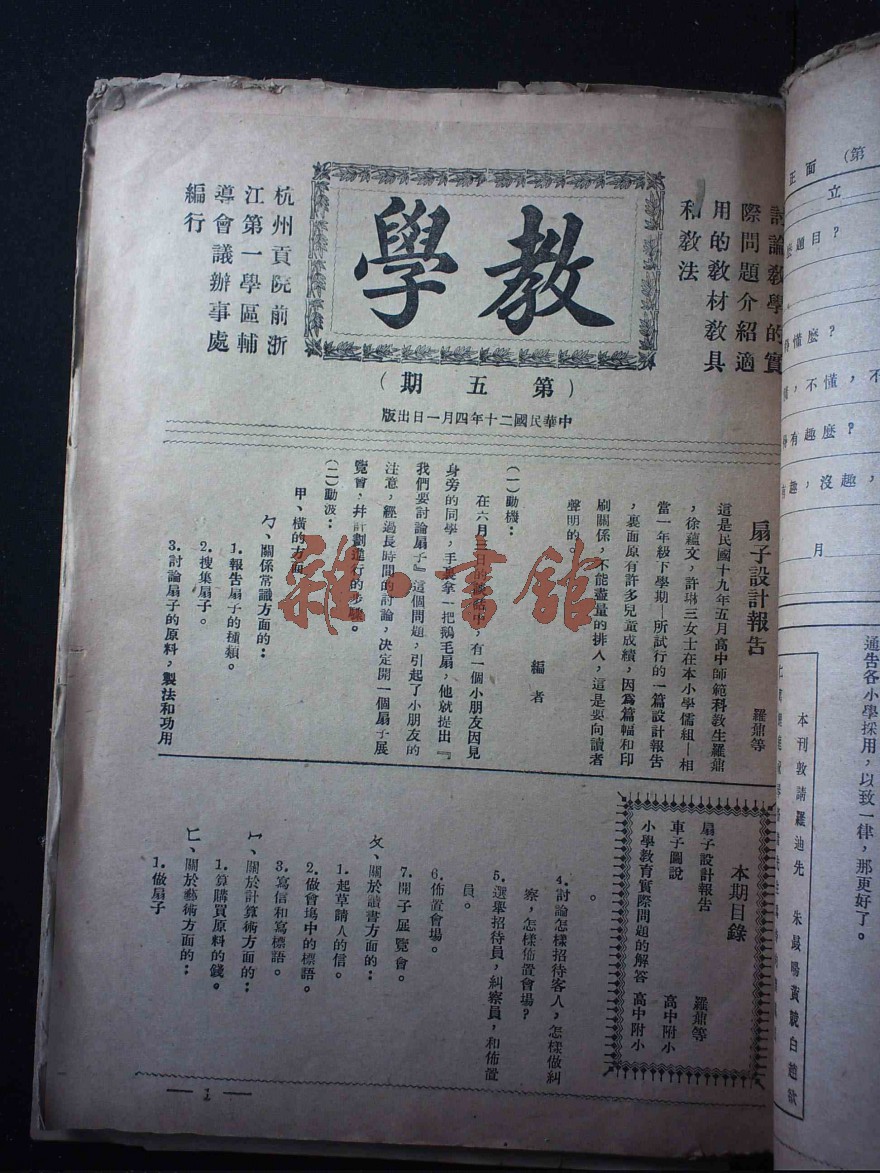 教學
（第五期）
中華民國二十年四月一日出版
討論教學的實
際問題介紹適
用的教材教具
和教法
杭州貢院前浙
江第一學區輔
導會議辦事處
編行
扇子設計報告
羅鼐等
這是民國十九年五月高中師範科教生羅鼐
，徐蘊文，許琳三女士在本小學儒組—相
當一年級下學期—所試行的一篇設計報告
，裏面原有許多兒童成績，因爲篇幅和印
刷關係，不能盡量的排入，這是要向讀者
聲明的。
編者
（一）動機：
在六月三日的談話中，有一個小朋友因見
身旁的同學，手裏拿一把鵝毛扇，他就提出『
我們要討論扇子』這個問題，引起了小朋友的
注意，經過長時間的討論，決定開一個扇子展
覽會，幷計劃進行的步驟。
（二）動汲：
甲、橫的方面
ㄅ、關係常識方面的：
1.報告扇子的種類。
2.搜集扇子。
3.討論扇子的原料，製法和功用
。
本期目錄
扇子設計報告　羅鼐等
車子圖說　高中附小
小學教育實際問題的解答　高中附小
4.討論怎樣招待客人，怎樣做糾
察，怎樣佈置會場？
5.選舉招待員，糾察員，和佈置
員。
6.佈置會場。
7.開子展覽會。
ㄆ、關於讀書方面的：
1.起草請人的信。
2.做會塲中的標語。
3.寫信和寫標語。
ㄇ、關於計算術方面的：
1.算購買原料的錢。
ㄈ、關於藝術方面的：
1.做扇子
— 1 —
雜·書館
正面（第
立
題目？
懂麼？
，不懂，不
有趣麼？
趣，沒趣，
月
通告各小學採用，以致一律，那更好了。
本刊敦請羅迪先